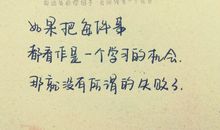 如果把每件事
都看作是一个学习的机会.
那就没有所谓的失败了.